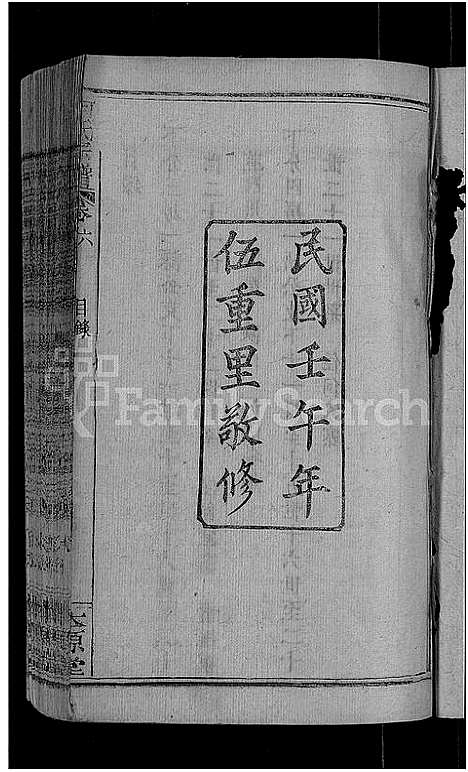 民國壬午年
伍重里敬修
氏宗譜 卷六 目錄
本原堂
FamilySearch